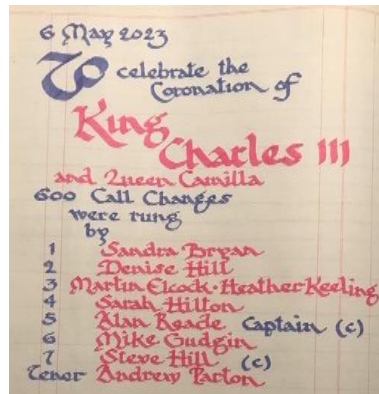 6 May 2023
To celebrate the
Coronation of
King
Charles III
and Queen Camilla
600 Call Changes
were rung
by
1 Sandra Bryan
2 Denise Hill
3 Martin Elcock · Heather Keeling
4 Sarah Hilton
5 Alan Reade Captain (c)
6 Mike Gudgin
7 Steve Hill (c)
Tenor Andrew Parton